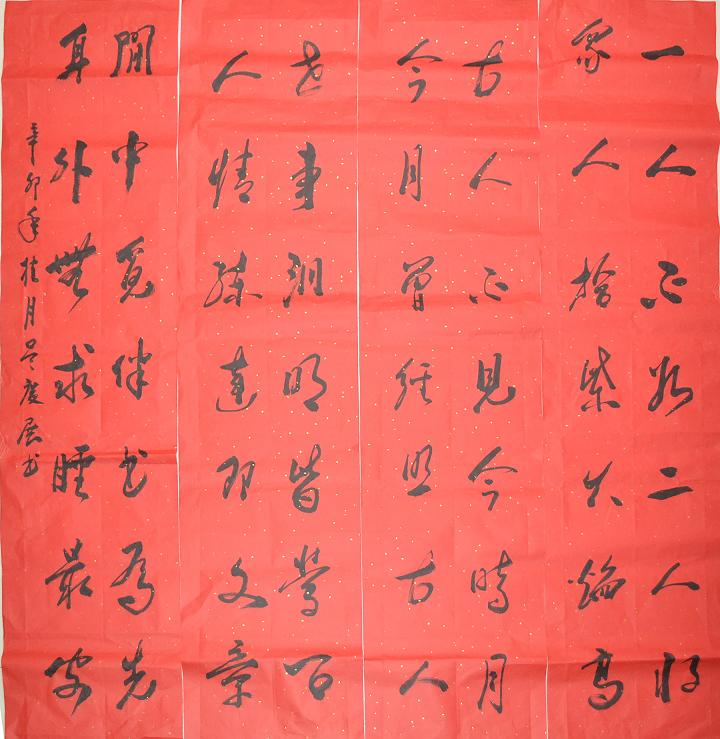 一人不如二人好
眾人拾柴火焰高
古人不見今時月
今月曾經照古人
世事洞明皆學问
人情練達即文章
閒中覓伴书為先
身外無求睡最安
辛卯年桂月展书